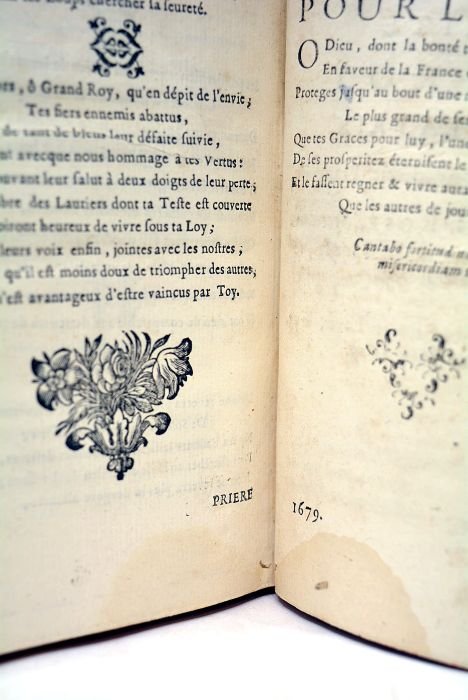 chercher la seureté.
, ô Grand Roy, qu'en dépit de l'envie;
Tes fiers ennemis abattus,
de tant de biens leur défaite suivie,
avecque nous hommage à tes Vertus:
leur salut à deux doigts de leur perte;
des Lauriers dont ta Teste est couverte
heureux de vivre sous ta Loy;
leurs voix enfin, jointes avec les nostres;
qu'il est moins doux de triompher des autres,
avantageux d'estre vaincus par Toy.
PRIERE
POUR L
O Dieu, dont la bonté
En faveur de la France
Proteges jusqu'au bout d'une
Le plus grand de
Que tes Graces pour luy, l'une
De ses prosperitez éternisent le
Et le fassent regner & vivre
Que les autres de
Cantabo fortitud
misericordiam
1679.